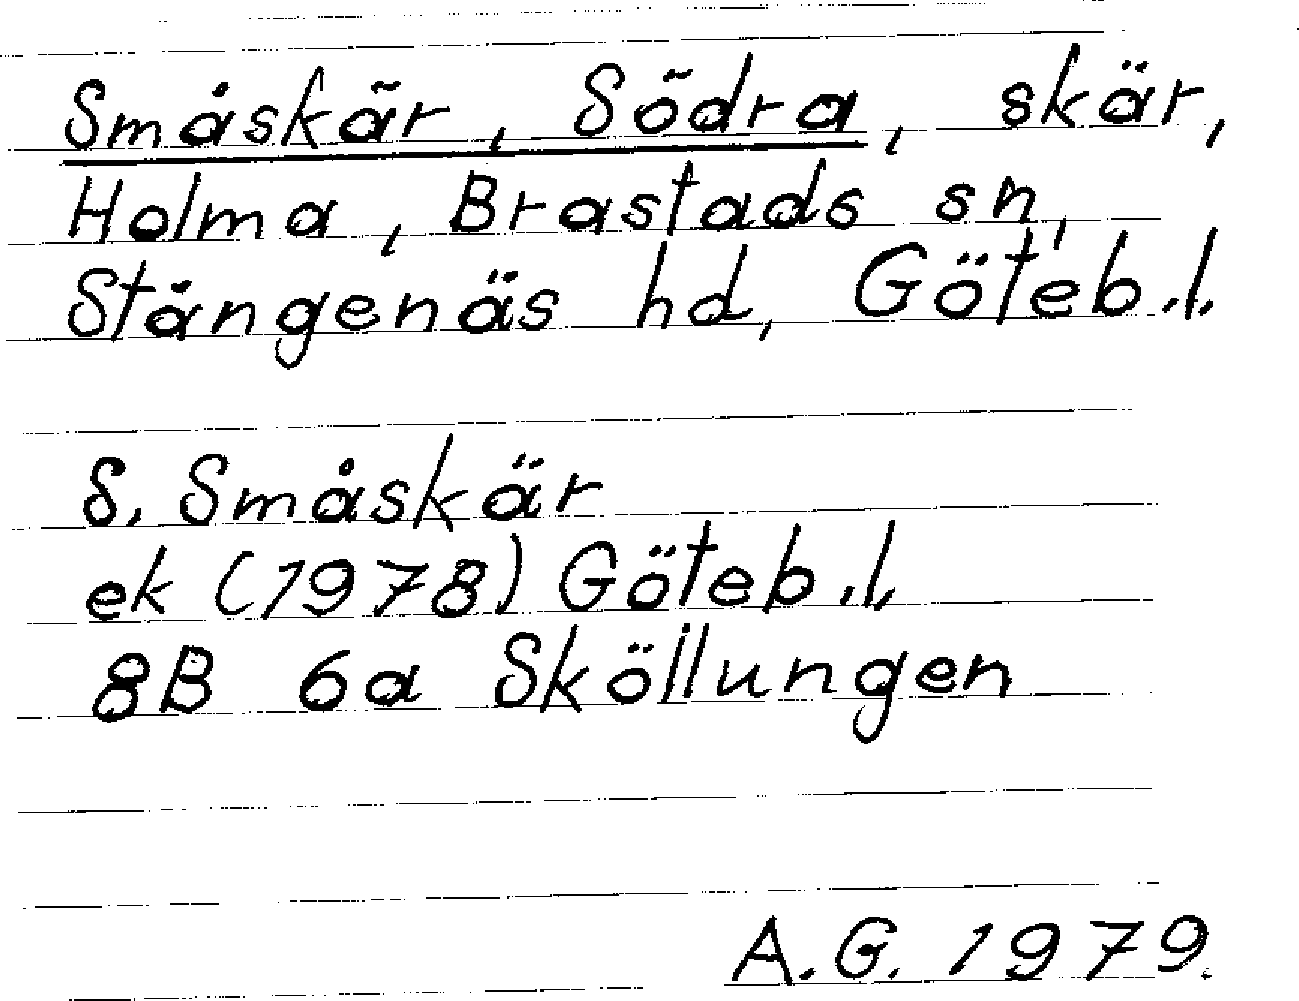 Småskär, Södra, skär,
Holma, Brastads sn,
Stångenäs hd, Göteb.l.
S. Småskär
ek (1978) Göteb.l.
8B 6a Sköllungen
A.G. 1979.